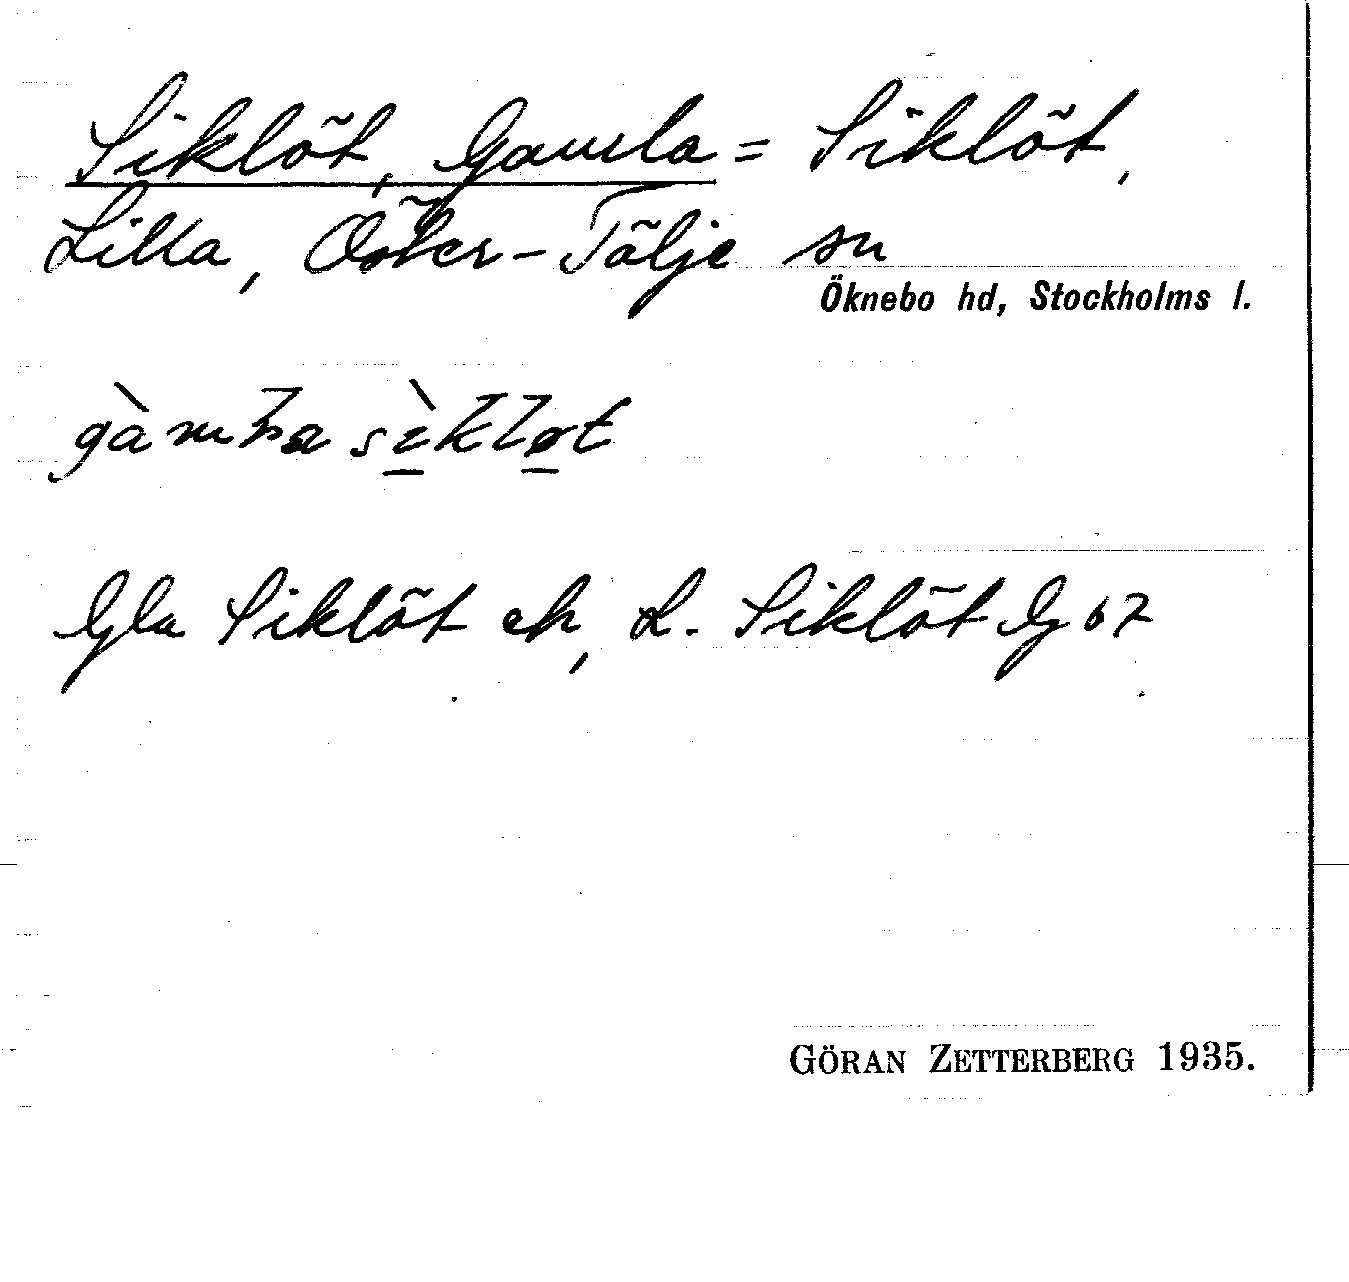 Siklöt, Gamla = Siklöt,
Lilla, Öster-Tälje sn
Öknebo hd, Stockholms l.
gàmla sìkløt
Gla Siklöt ek, L. Siklöt G 67
GÖRAN ZETTERBERG 1935.